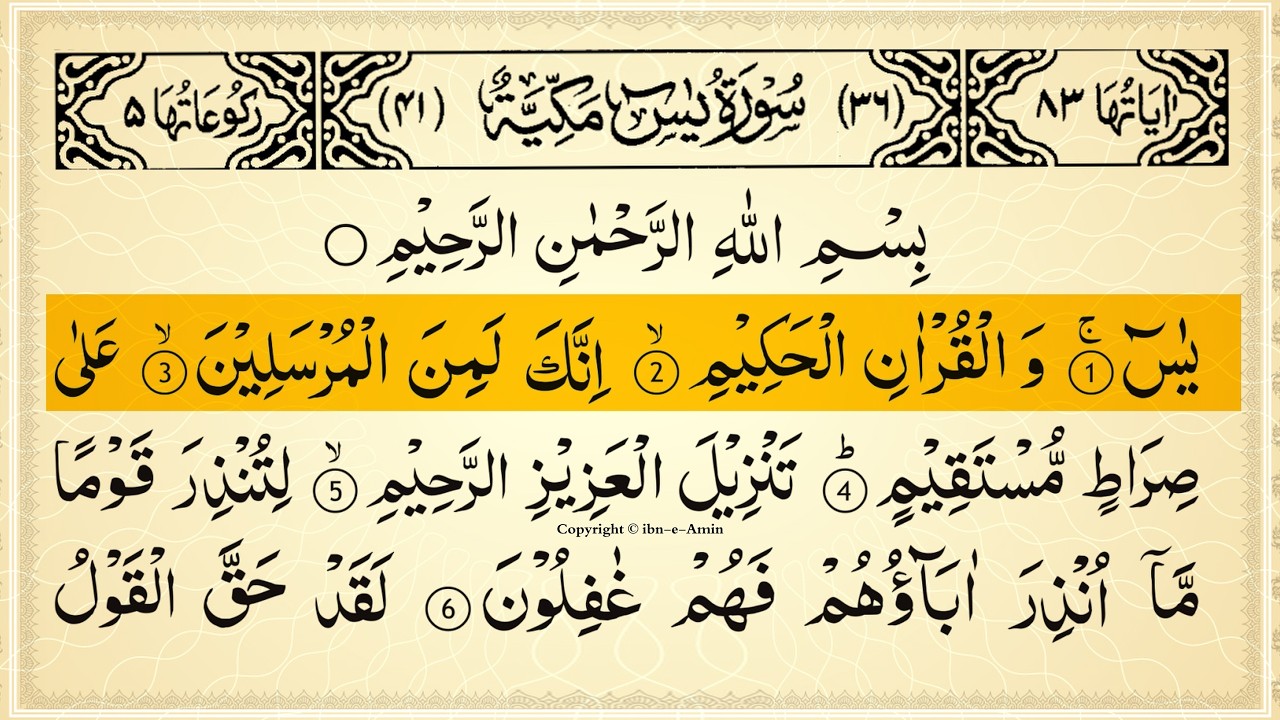 اٰيَاتُهَا ٨٣ (٣٦) سُوْرَةُ يٰسٓ مَكِّيَّةٌ (۴۱) رَكُوْعَاتُهَا ۵
بِسْمِ اللّٰهِ الرَّحْمٰنِ الرَّحِيْمِ ○
يٰسٓ ۚ ① وَ الْقُرْاٰنِ الْحَكِيْمِ ۙ ② اِنَّكَ لَمِنَ الْمُرْسَلِيْنَ ۙ ③ عَلٰى
صِرَاطٍ مُّسْتَقِيْمٍ ؕ ④ تَنْزِيْلَ الْعَزِيْزِ الرَّحِيْمِ ۙ ⑤ لِتُنْذِرَ قَوْمًا
Copyright © ibn-e-Amin
مَّاۤ اُنْذِرَ اٰبَآؤُهُمْ فَهُمْ غٰفِلُوْنَ ⑥ لَقَدْ حَقَّ الْقَوْلُ